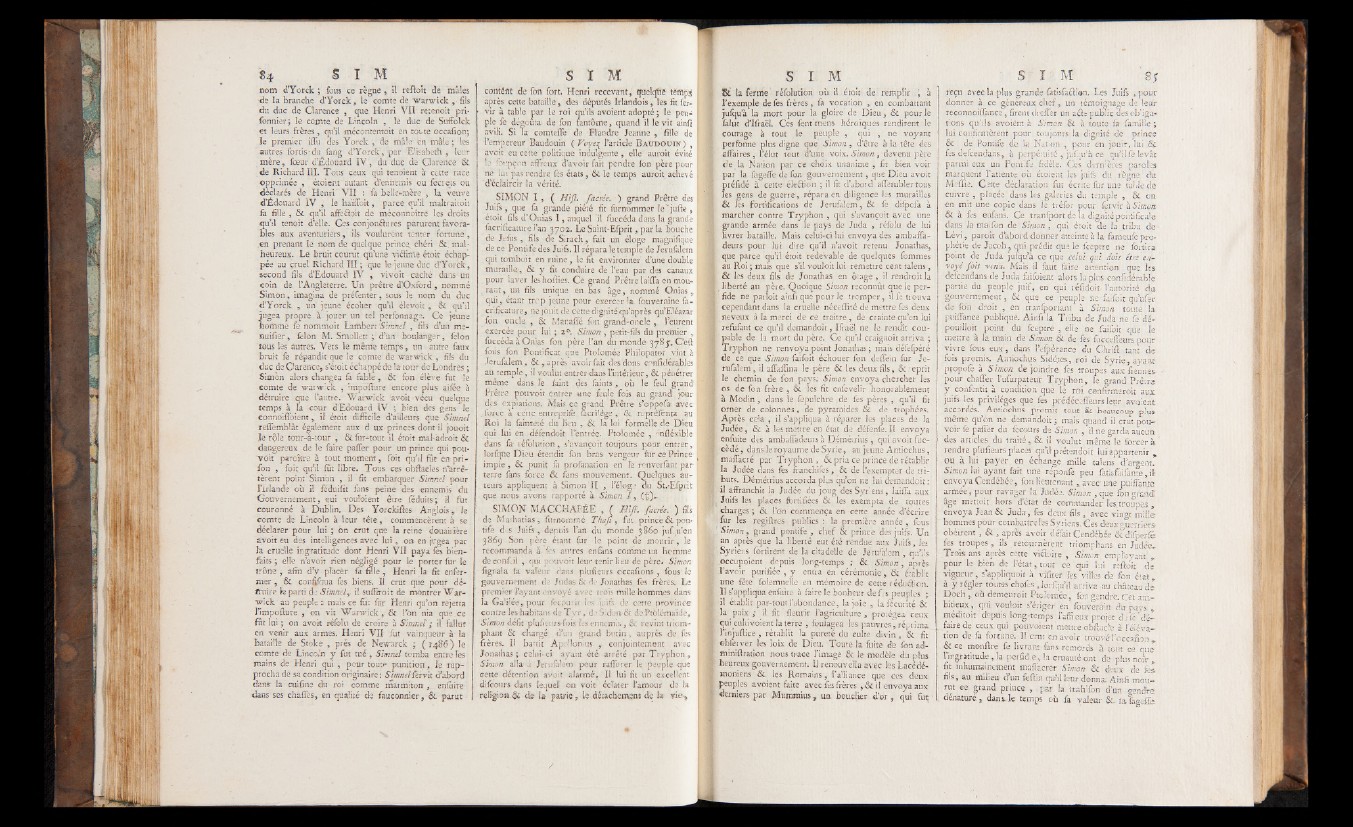 84 S I M
nom d'Yorck ; sous ce règne, il restoit de mâles
de la branche d'Yorck, le comte de Warwick, fils
du duc de Clarence, que Henri VII retenoit pri-
sonnier ; le comte de Lincoln, le duc de Suffolck
et leurs frères, qu'il mécontentoit en toute occasion ;
le premier issu des Yorck, de mâle en mâle ; les
autres sortis du sang d'Yorck, par Elisabeth, leur
mère, sœur d'Édouard IV, du duc de Clarence &
de Richard III. Tous ceux qui tenoient à cette race
opprimée, étoient autant d'ennemis ou secrets ou
déclarés de Henri VII : sa belle-mère, la veuve
d'Édouard IV, le haïssoit, parce qu'il maltraitoit
sa fille, & qu'il affectoit de méconnoître les droits
qu'il tenoit d'elle. Ces conjonctures parurent favora-
bles aux aventuriers, ils voulurent tenter fortune,
en prenant le nom de quelque prince chéri & mal-
heureux. Le bruit courut qu'une victime étoit échap-
pée au cruel Richard III ; que le jeune duc d'Yorck,
second fils d'Edouard IV, vivoit caché dans un
coin de l'Angleterre. Un prêtre d'Oxford, nommé
Simon, imagina de présenter, sous le nom du duc
d'Yorck, un jeune écolier qu'il élevoit, & qu'il
jugea propre à jouer un tel personnage. Ce jeune
homme se nommoit Lambert Simnel, fils d'un me-
nuisier, selon M. Smollett ; d'un boulanger, selon
tous les autres. Vers le même temps, un autre faux
bruit se répandit que le comte de warwick, fils du
duc de Clarence, s'étoit échappé de la tour de Londres ;
Simon alors changea sa fable, & son élève fut le
comte de warwick, imposture encore plus aisée à
détruire que l'autre. Warwick avoit vécu quelque
temps à la cour d'Edouard IV ; bien des gens le
connoissoient, il étoit difficile d'ailleurs que Simnel
ressemblât également aux deux princes dont il jouoit
le rôle tour-à-tour, & sur-tout il étoit mal-adroit &
dangereux de le faire passer pour un prince qui pou-
voit paroître à tout moment, soit qu'il fût en pri-
son, soit qu'il fût libre. Tous ces obstacles n'arrê-
tèrent point Simon, il fit embarquer Simnel pour
l'Irlande où il séduisit sans peine des ennemis du
Gouvernement, qui vouloient être séduits ; il fut
couronné à Dublin. Des Yorckistes Anglois, le
comte de Lincoln à leur tête, commencèrent à se
déclarer pour lui ; on crut que la reine douairière
avoit eu des intelligences avec lui, on en jugea par
la cruelle ingratitude dont Henri VII paya ses bien-
faits ; elle n'avoit rien négligé pour le porter sur le
trône, afin d'y placer sa fille, Henri la fit enfer-
mer, & confisqua ses biens. Il crut que pour dé-
truire le parti de Simnel, il suffiroit de montrer War-
wick au peuple : mais ce fut sur Henri qu'on rejetta
l'imposture, on vit Warwick, & l'on nia que ce
fût lui ; on avoit résolu de croire à Simnel ; il fallut
en venir aux armes. Henri VII fut vainqueur à la
bataille de Stoke, près de Newarck ; (1486) le
comte de Lincoln y fut tué, Simnel tomba entre les
mains de Henri qui, pour toute punition, le rap-
procha de sa condition originaire : Simnel servit d'abord
dans la cuisine du roi comme marmiton, ensuite
dans ses chasses, en qualité de fauconnier, & parut
S I M
content de son sort. Henri recevant, quelque temps
après cette bataille, des députés Irlandois, les fit ser-
vir à table par le roi qu'ils avoient adopté ; le peu-
ple se dégoûta de son fantôme, quand il le vit ainsi
avili. Si la comtesse de Flandre Jeanne, fille de
l'empereur Baudouin ( Voyez l'article BAUDOUIN ),
avoit eu cette politique indulgente, elle auroit évité
le soupçon affreux d'avoir fait pendre son père pour
ne lui pas rendre ses états, & le temps auroit achevé
d'éclaircir la vérité.
SIMON I, ( Hist. sacrée. ) grand Prêtre des
Juifs, que sa grande piété fit surnommer le juste,
étoit fils d'Onias I, auquel il succéda dans la grande
sacrificature l'an 3702. Le Saint-Esprit, par la bouche
de Jésus, fils de Sirach, fait un éloge magnifique
de ce Pontife des Juifs. Il répara le temple de Jérusalem
qui tomboit en ruine, le fit environner d'une double
muraille, & y fit conduire de l'eau par des canaux
pour laver les hosties. Ce grand Prêtre laissa en mou-
rant, un fils unique en bas âge, nommé Onias,
qui, étant trop jeune pour exercer la souveraine sa-
crificature, ne jouit de cette dignité qu'après qu'Eléazar
son oncle, & Manassé son grand-oncle, l'eurent
exercée pour lui ; 2°. Simon, petit-fils du premier,
succéda à Onias son père l'an du monde 3785. C'est
sous son Pontificat que Ptolomée Philopator vint à
Jérusalem, & après avoir fait des dons considérables
au temple, il voulut entrer dans l'intérieur, & pénétrer
même dans le saint des saints, où le seul grand
Prêtre pouvoit entrer une seule fois au grand jour
des expiations. Mais ce grand Prêtre s'opposa avec
force à cette entreprise sacrilège, & représenta au
Roi la sainteté du lieu, & la loi formelle de Dieu
qui lui en défendoit l'entrée. Ptolomée, infléxible
dans sa résolution, s'avançoit toujours pour entrer,
lorsque Dieu étendit son bras vengeur sur ce Prince
impie, & punit sa profanation en le renversant par
terre sans force & sans mouvement. Quelques au-
teurs appliquent à Simon II, l'éloge du St.-Esprit
que nous avons rapporté à Simon I, (†).
SIMON MACCHABÉE, ( Hist. sacrée. ) fils
de Mathatias, surnommé Thasi, fut prince & pon-
tife des Juifs, depuis l'an du monde 3860 jusqu'en
3869 Son père étant sur le point de mourir, le
recommanda à ses autres enfans comme un homme
de conseil, qui pouvoit leur tenir lieu de père. Simon
signala sa valeur dans plusieurs occasions, sous le
gouvernement de Judas & de Jonathas ses frères. Le
premier l'ayant envoyé avec trois mille hommes dans
la Galilée, pour secourir les juifs de cette province
contre les habitans de Tyr, de Sidon & de Ptolémaïde,
Simon défit plusieurs fois les ennemis, & revint triom-
phant & chargé d'un grand butin, auprès de ses
frères. Il battit Apollonius, conjointement avec
Jonathas ; celui-ci ayant été arrêté par Tryphon,
Simon alla à Jérusalem pour rassurer le peuple que
cette détention avoit alarmé. Il lui fit un excellent
discours dans lequel on voit éclater l'amour de la
religion & de la patrie, le détachement de la vie,
S I M
& la ferme résolution où il étoit de remplir, à
l'exemple de ses frères, sa vocation, en combattant
jusqu'à la mort pour la gloire de Dieu, & pour le
salut d'Israël. Ces sentimens héroïques rendirent le
courage à tout le peuple, qui, ne voyant
personne plus digne que Simon, d'être à la tête des
affaires, l'élut tout d'une voix. Simon, devenu père
de la Nation par ce choix unanime, fit bien voir
par la sagesse de son gouvernement, que Dieu avoit
présidé à cette élection ; il fit d'abord assembler tous
les gens de guerre, répara en diligence les murailles
& les fortifications de Jérusalem, & se disposa à
marcher contre Tryphon, qui s'avançoit avec une
grande armée dans le pays de Juda, résolu de lui
livrer bataille. Mais celui-ci lui envoya des ambassa-
deurs pour lui dire qu'il n'avoit retenu Jonathas,
que parce qu'il étoit redevable de quelques sommes
au Roi ; mais que s'il vouloit lui remettre cent talens,
& les deux fils de Jonathas en ôtage, il rendroit la
liberté au père. Quoique Simon reconnût que le per-
fide ne parloit ainsi que pour le tromper, il se trouva
cependant dans la cruelle nécessité de mettre ses deux
neveux à la merci de ce traître, de crainte qu'en lui
refusant ce qu'il demandoit, Israël ne le rendît cou-
pable de la mort du père. Ce qu'il craignoit arriva ;
Tryphon ne renvoya point Jonathas ; mais désespéré
de ce que Simon faisoit échouer son dessein sur Je-
rusalem, il assassina le père & les deux fils, & reprit
le chemin de son pays. Simon envoya chercher les
os de son frère, & les fit ensevelir honorablement
à Modin, dans le sepulchre de ses pères, qu'il fit
orner de colonnes, de pyramides & de trophées.
Après cela, il s'appliqua à réparer les places de la
Judée, & à les mettre en état de défense. Il envoya
ensuite des ambassadeurs à Démétrius, qui avoit suc-
cédé, dans le royaume de Syrie, au jeune Antiochus,
massacré par Tryphon, & pria ce prince de rétablir
la Judée dans ses franchises, & de l'exempter de tri-
buts. Démétrius accorda plus qu'on ne lui demandoit :
il affranchit la Judée du joug des Syriens, laissa aux
Juifs les places fortifiées & les exempta de toutes
charges ; & l'on commença en cette année d'écrire
sur les registres publics : la première année, sous
Simon, grand pontife, chef & prince des juifs. Un
an après que la liberté eut été rendue aux Juifs, les
Syriens sortirent de la citadelle de Jérusalem, qu'ils
occupoient depuis long-temps ; & Simon, après
l'avoir purifiée, y entra en cérémonie, & établit
une fête solemnelle en mémoire de cette réduction.
Il s'appliqua ensuite à faire le bonheur de ses peuples ;
il établit par-tout l'abondance, la joie, la sécurité &
la paix ; il fit fleurir l'agriculture, protégea ceux
qui cultivoient la terre, soulagea les pauvres, réprima
l'injustice, rétablit la pureté du culte divin, & fit
observer les loix de Dieu. Toute la suite de son ad-
ministration nous trace l'image & le modèle du plus
heureux gouvernement. Il renouvella avec les Lacédé-
moniens & les Romains, l'alliance que ces deux
peuples avoient faite avec ses frères, & il envoya aux
derniers par Mummius, un bouclier d'or, qui fut
S I M 85
reçu avec la plus grande satisfaction. Les Juifs, pour
donner à ce généreux chef, un témoignage de leur
reconnoissance, firent dresser un acte public des obliga-
tions qu'ils avoient à Simon & à toute sa famille ;
lui confirmèrent pour toujours la dignité de prince
& de Pontife de la Nation, pour en jouir, lui &
ses descendans, à perpétuité, jusqu'à ce qu'il se levât
parmi eux un Pontife fidèle. Ces dernières paroles
marquent l'attente où étoient les juifs du règne du
Messie. Cette déclaration fut écrite sur une table de
cuivre, placée dans les galeries du temple, & on
en mit une copie dans le trésor pour servir à Simon
& à ses enfans. Ce transport de la dignité pontificale
dans la maison de Simon, qui étoit de la tribu de
Lévi, paroît d'abord donner atteinte à la fameuse pro-
phétie de Jacob, qui prédit que le sceptre ne sortira
point de Juda jusqu'à ce que celui qui doit être en-
voyé soit venu. Mais il faut faire attention que les
descendans de Juda faisoient alors la plus considérable
partie du peuple juif, en qui résidoit l'autorité du
gouvernement, & que ce peuple ne faisoit qu'user
de son droit, en transportant à Simon toute la
puissance publique. Ainsi la Tribu de Juda ne se dé-
pouilloit point du sceptre, elle ne faisoit que le
mettre à la main de Simon & de ses successeurs pour
vivre sous eux, dans l'espérance du Christ tant de
fois promis. Antiochus Sidètes, roi de Syrie, ayant
proposé à Simon de joindre ses troupes aux siennes
pour chasser l'usurpateur Tryphon, le grand Prêtre
y consentit à condition que le roi confirmeroit aux
juifs les privilèges que ses prédécesseurs leur avoient
accordés. Antiochus promit tout & beaucoup plus
même qu'on ne demandoit ; mais quand il crut pou-
voir se passer du secours de Simon, il ne garda aucun
des articles du traité, & il voulut même le forcer à
rendre plusieurs places qu'il prétendoit lui appartenir,
ou à lui payer en échange mille talens d'argent.
Simon lui ayant fait une réponse peu satisfaisante, il
envoya Cendébée, son lieutenant, avec une puissante
armée, pour ravager la Judée. Simon, que son grand
âge mettoit hors d'état de commander ses troupes,
envoya Jean & Juda, ses deux fils, avec vingt mille
hommes pour combattre les Syriens. Ces deux guerriers
obéirent, & après avoir défait Cendébée & dispersé
ses troupes, ils retournèrent triomphans en Judée.
Trois ans après cette victoire, Simon employant,
pour le bien de l'état, tout ce qui lui restoit de
vigueur, s'appliquoit à visiter les villes de son état,
à y régler toutes choses, lorsqu'il arriva au château de
Doch, où demeuroit Ptolomée, son gendre. Cet am-
bitieux, qui vouloit s'ériger en souverain du pays,
méditoit depuis long-temps l'affreux projet de se dé-
faire de ceux qui pouvoient mettre obstacle à l'éléva-
tion de sa fortune. Il crut en avoir trouvé l'occasion,
& ce monstre se livrant sans remords à tout ce que
l'ingratitude, la perfidie, la cruauté ont de plus noir,
fit inhumainement massacrer Simon & deux de ses
fils, au milieu d'un festin qu'il leur donna. Ainsi mou-
rut ce grand prince, par la trahison d'un gendre
dénaturé, dans le temps où sa valeur & sa sagesse